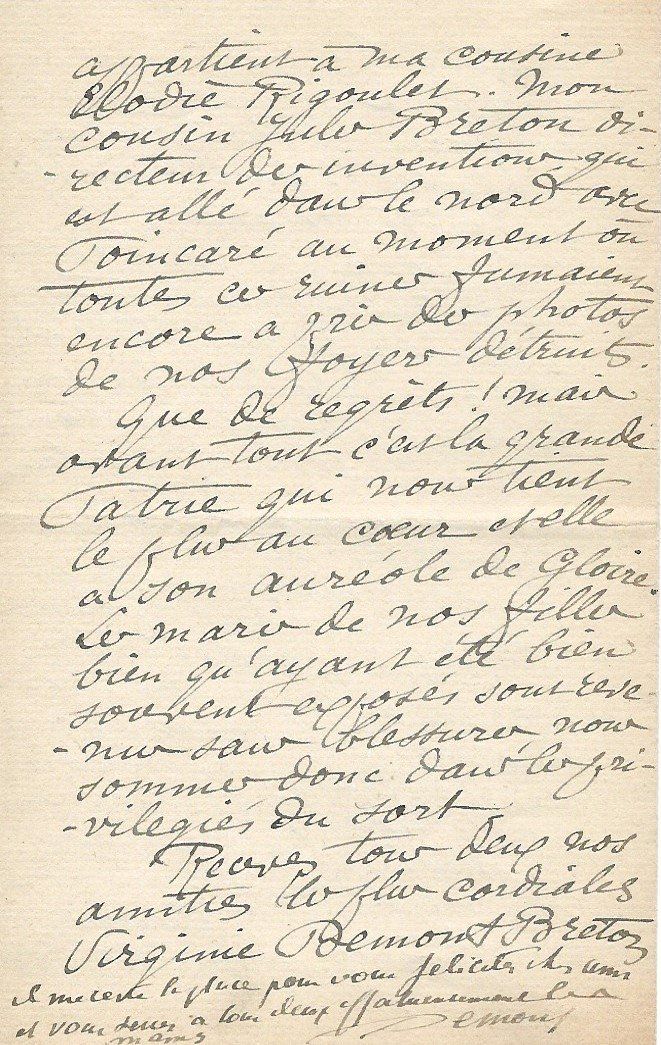 appartient à ma cousine
Elodie Rigoulet. Mon
cousin Jules Breton di-
-recteur des inventions qui
est allé dans le nord avec
Poincaré au moment où
toutes ces ruines fumaient
encore a pris des photos
de nos foyers détruits.
Que de regrets! mais
avant tout c'est la grande
Patrie qui nous tient
le plus au cœur et elle
a son auréole de Gloire.
Les maris de nos filles
bien qu'ayant été bien
souvent exposés sont reve-
-nus sans blessures, nous
sommes donc dans les pri-
-vilegiés du sort
Recevez tous deux nos
amitiés les plus cordiales
Virginie Demont Breton
il me reste la place pour vous feliciter chers amis
et vous serrer à tous deux affectueusement les
mains Demont